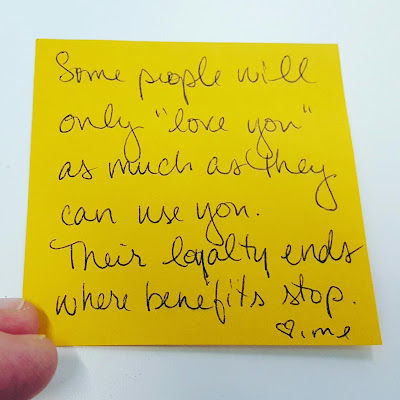 Some people will
only "love you"
as much as they
can use you.
Their loyalty ends
where benefits stop.
♡, me